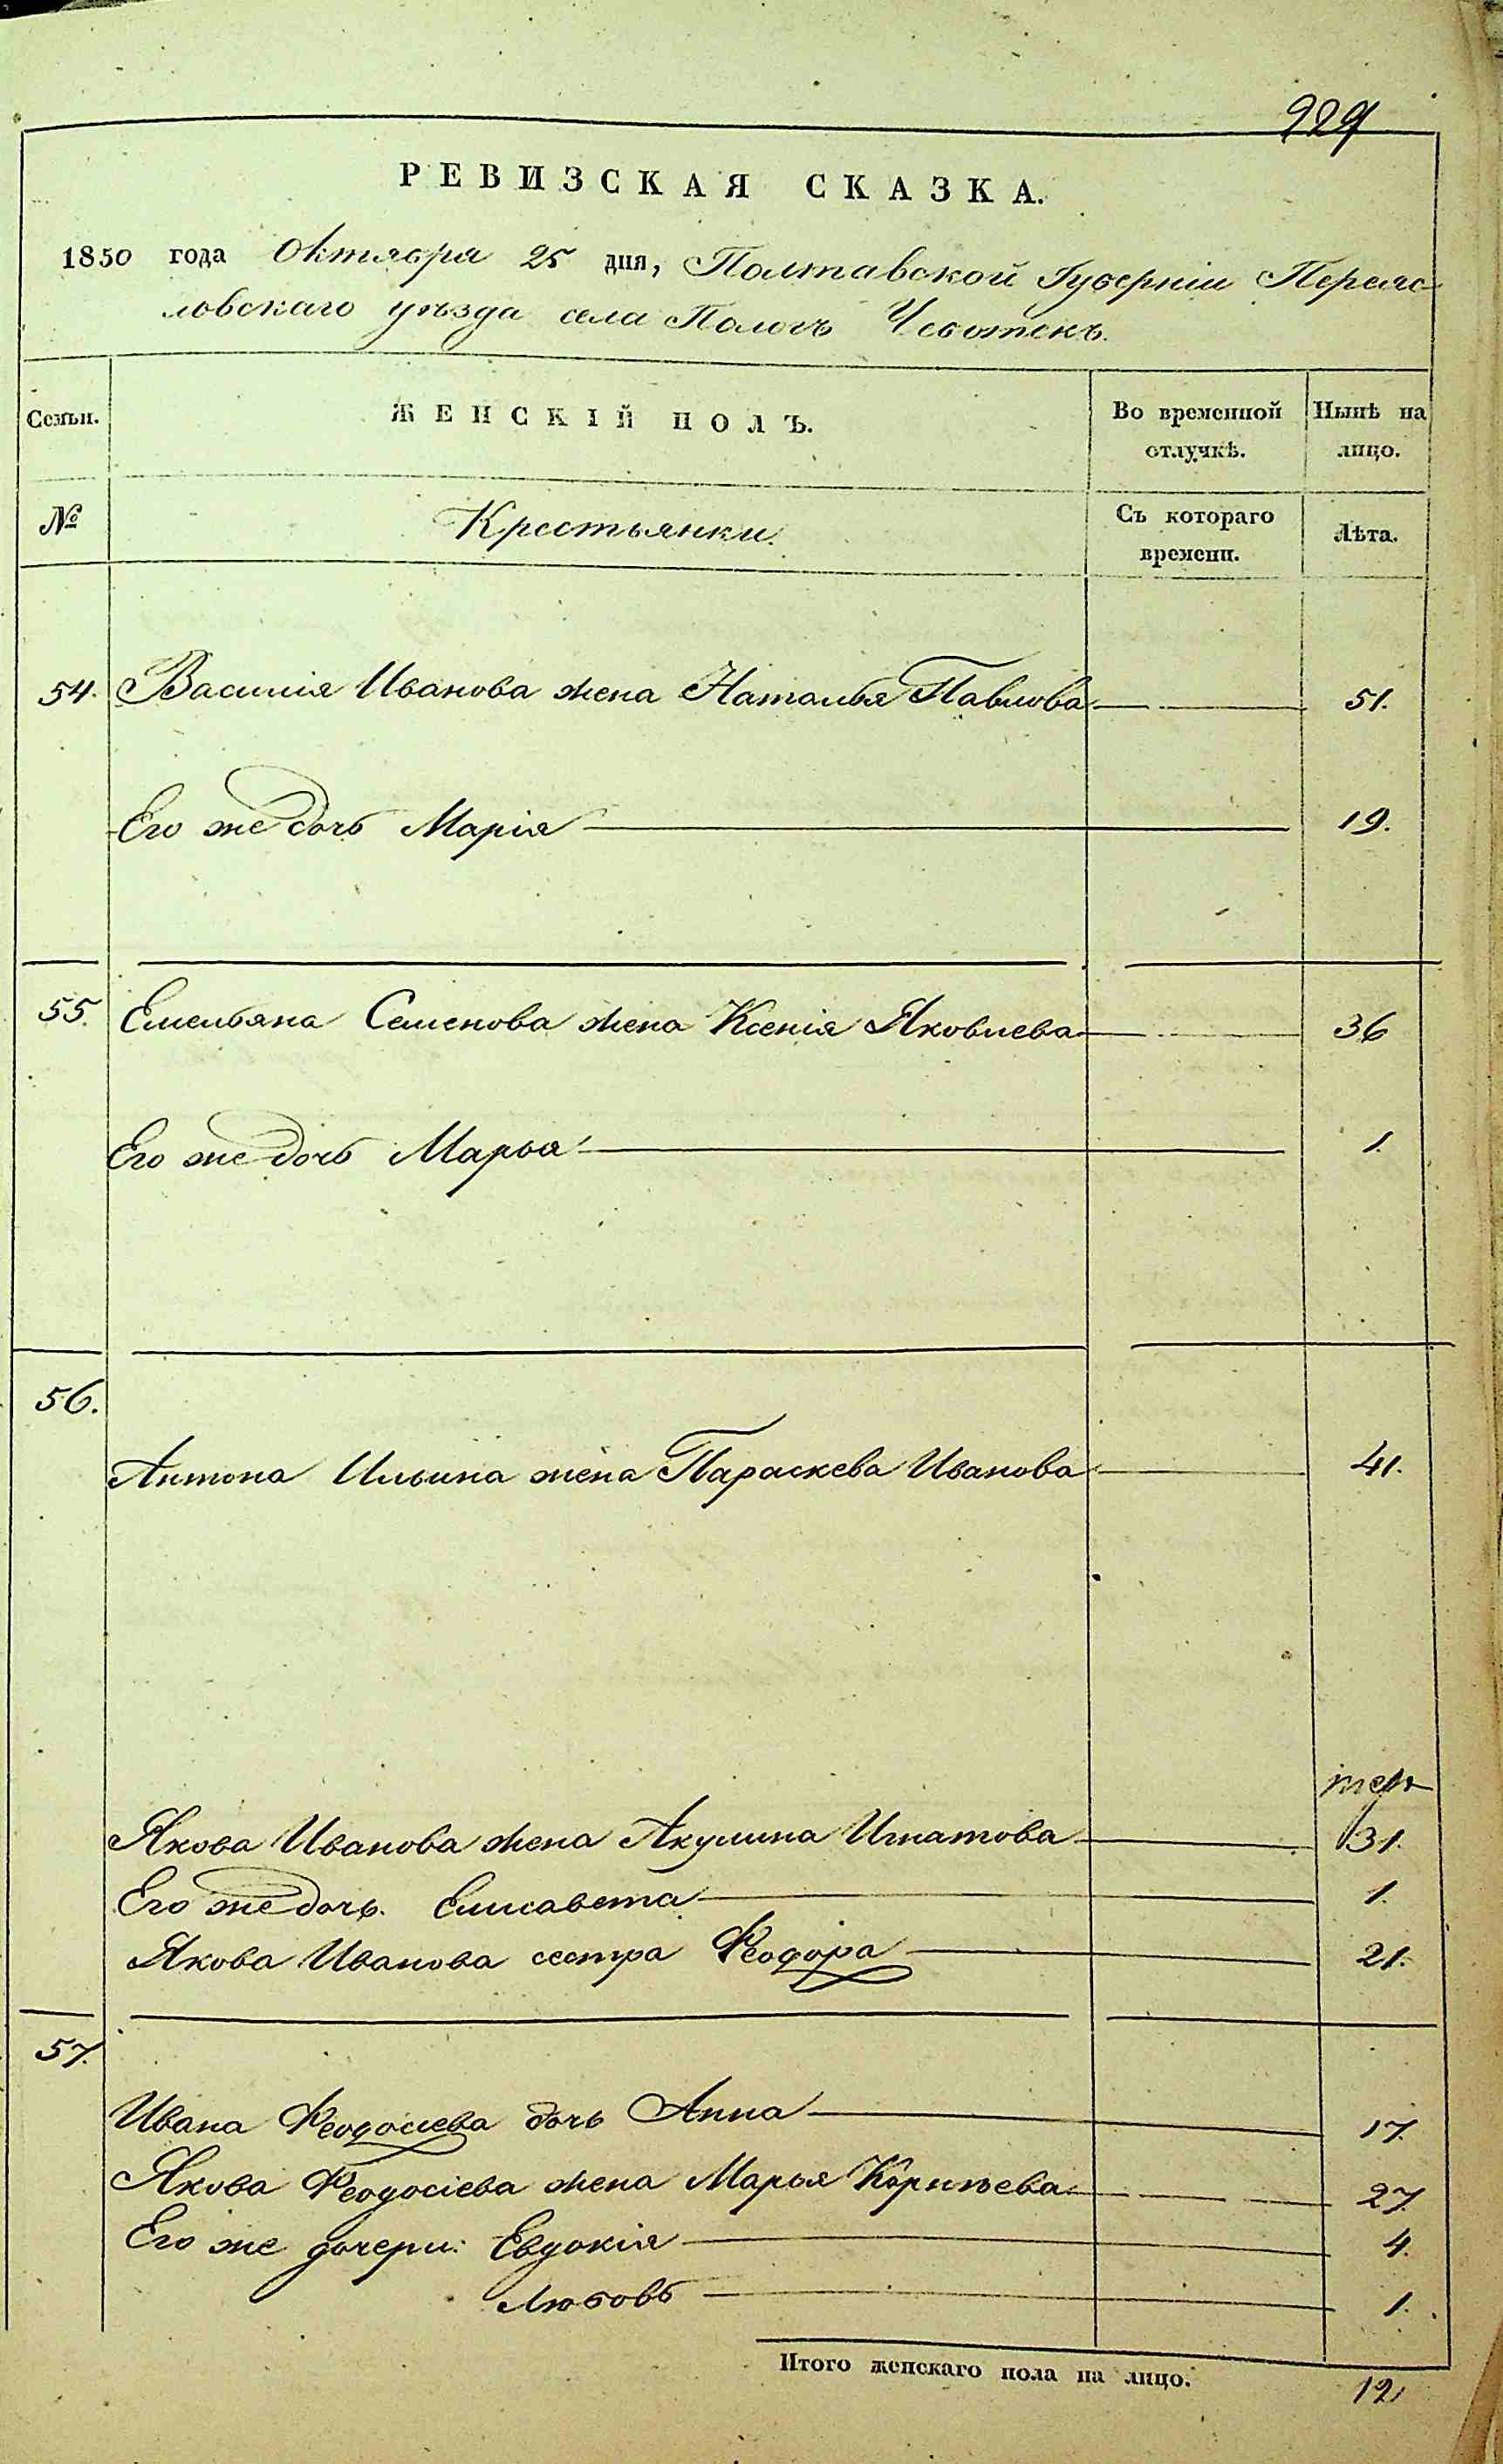 229
РЕВИЗСКАЯ СКАЗКА.
1850 года Октября 25 дня, Полтавской Губерніи Переяс-
ловскаго уѣзда села Пологъ Чеботекъ.
Семьи. ЖЕНСКІЙ ПОЛЪ. Во временной отлучкѣ. Нынѣ на лицо.
№ Крестьянки. Съ котораго времени. Лѣта.
54. Василія Иванова жена Наталья Павлова 51.
Его же дочь Марія 19.
55. Емельяна Семенова жена Ксенія Яковлева 36
Его же дочь Марья 1.
56.
Антона Ильина жена Параскева Иванова 41.
Якова Иванова жена Акулина Игнатова 31.
Его же дочь. Елисавета 1.
Якова Иванова сестра Феодора 21.
57.
Ивана Феодосіева дочь Анна 17.
Якова Феодосіева жена Марья Корнѣева 27.
Его же дочери: Евдокія 4.
Любовь 1.
Итого женскаго пола на лицо. 12